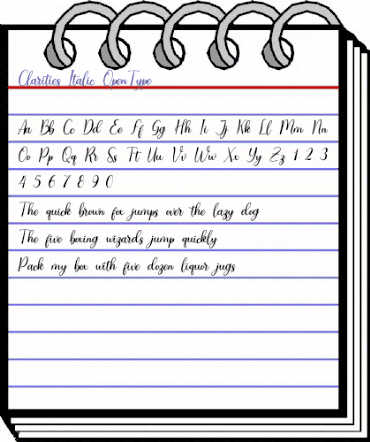 Clarities Italic OpenType
Aa Bb Cc Dd Ee Ff Gg Hh Ii Jj Kk Ll Mm Nn
Oo Pp Qq Rr Ss Tt Uu Vv Ww Xx Yy Zz 1 2 3
4 5 6 7 8 9 0
The quick brown fox jumps over the lazy dog
The five boxing wizards jump quickly
Pack my box with five dozen liquor jugs